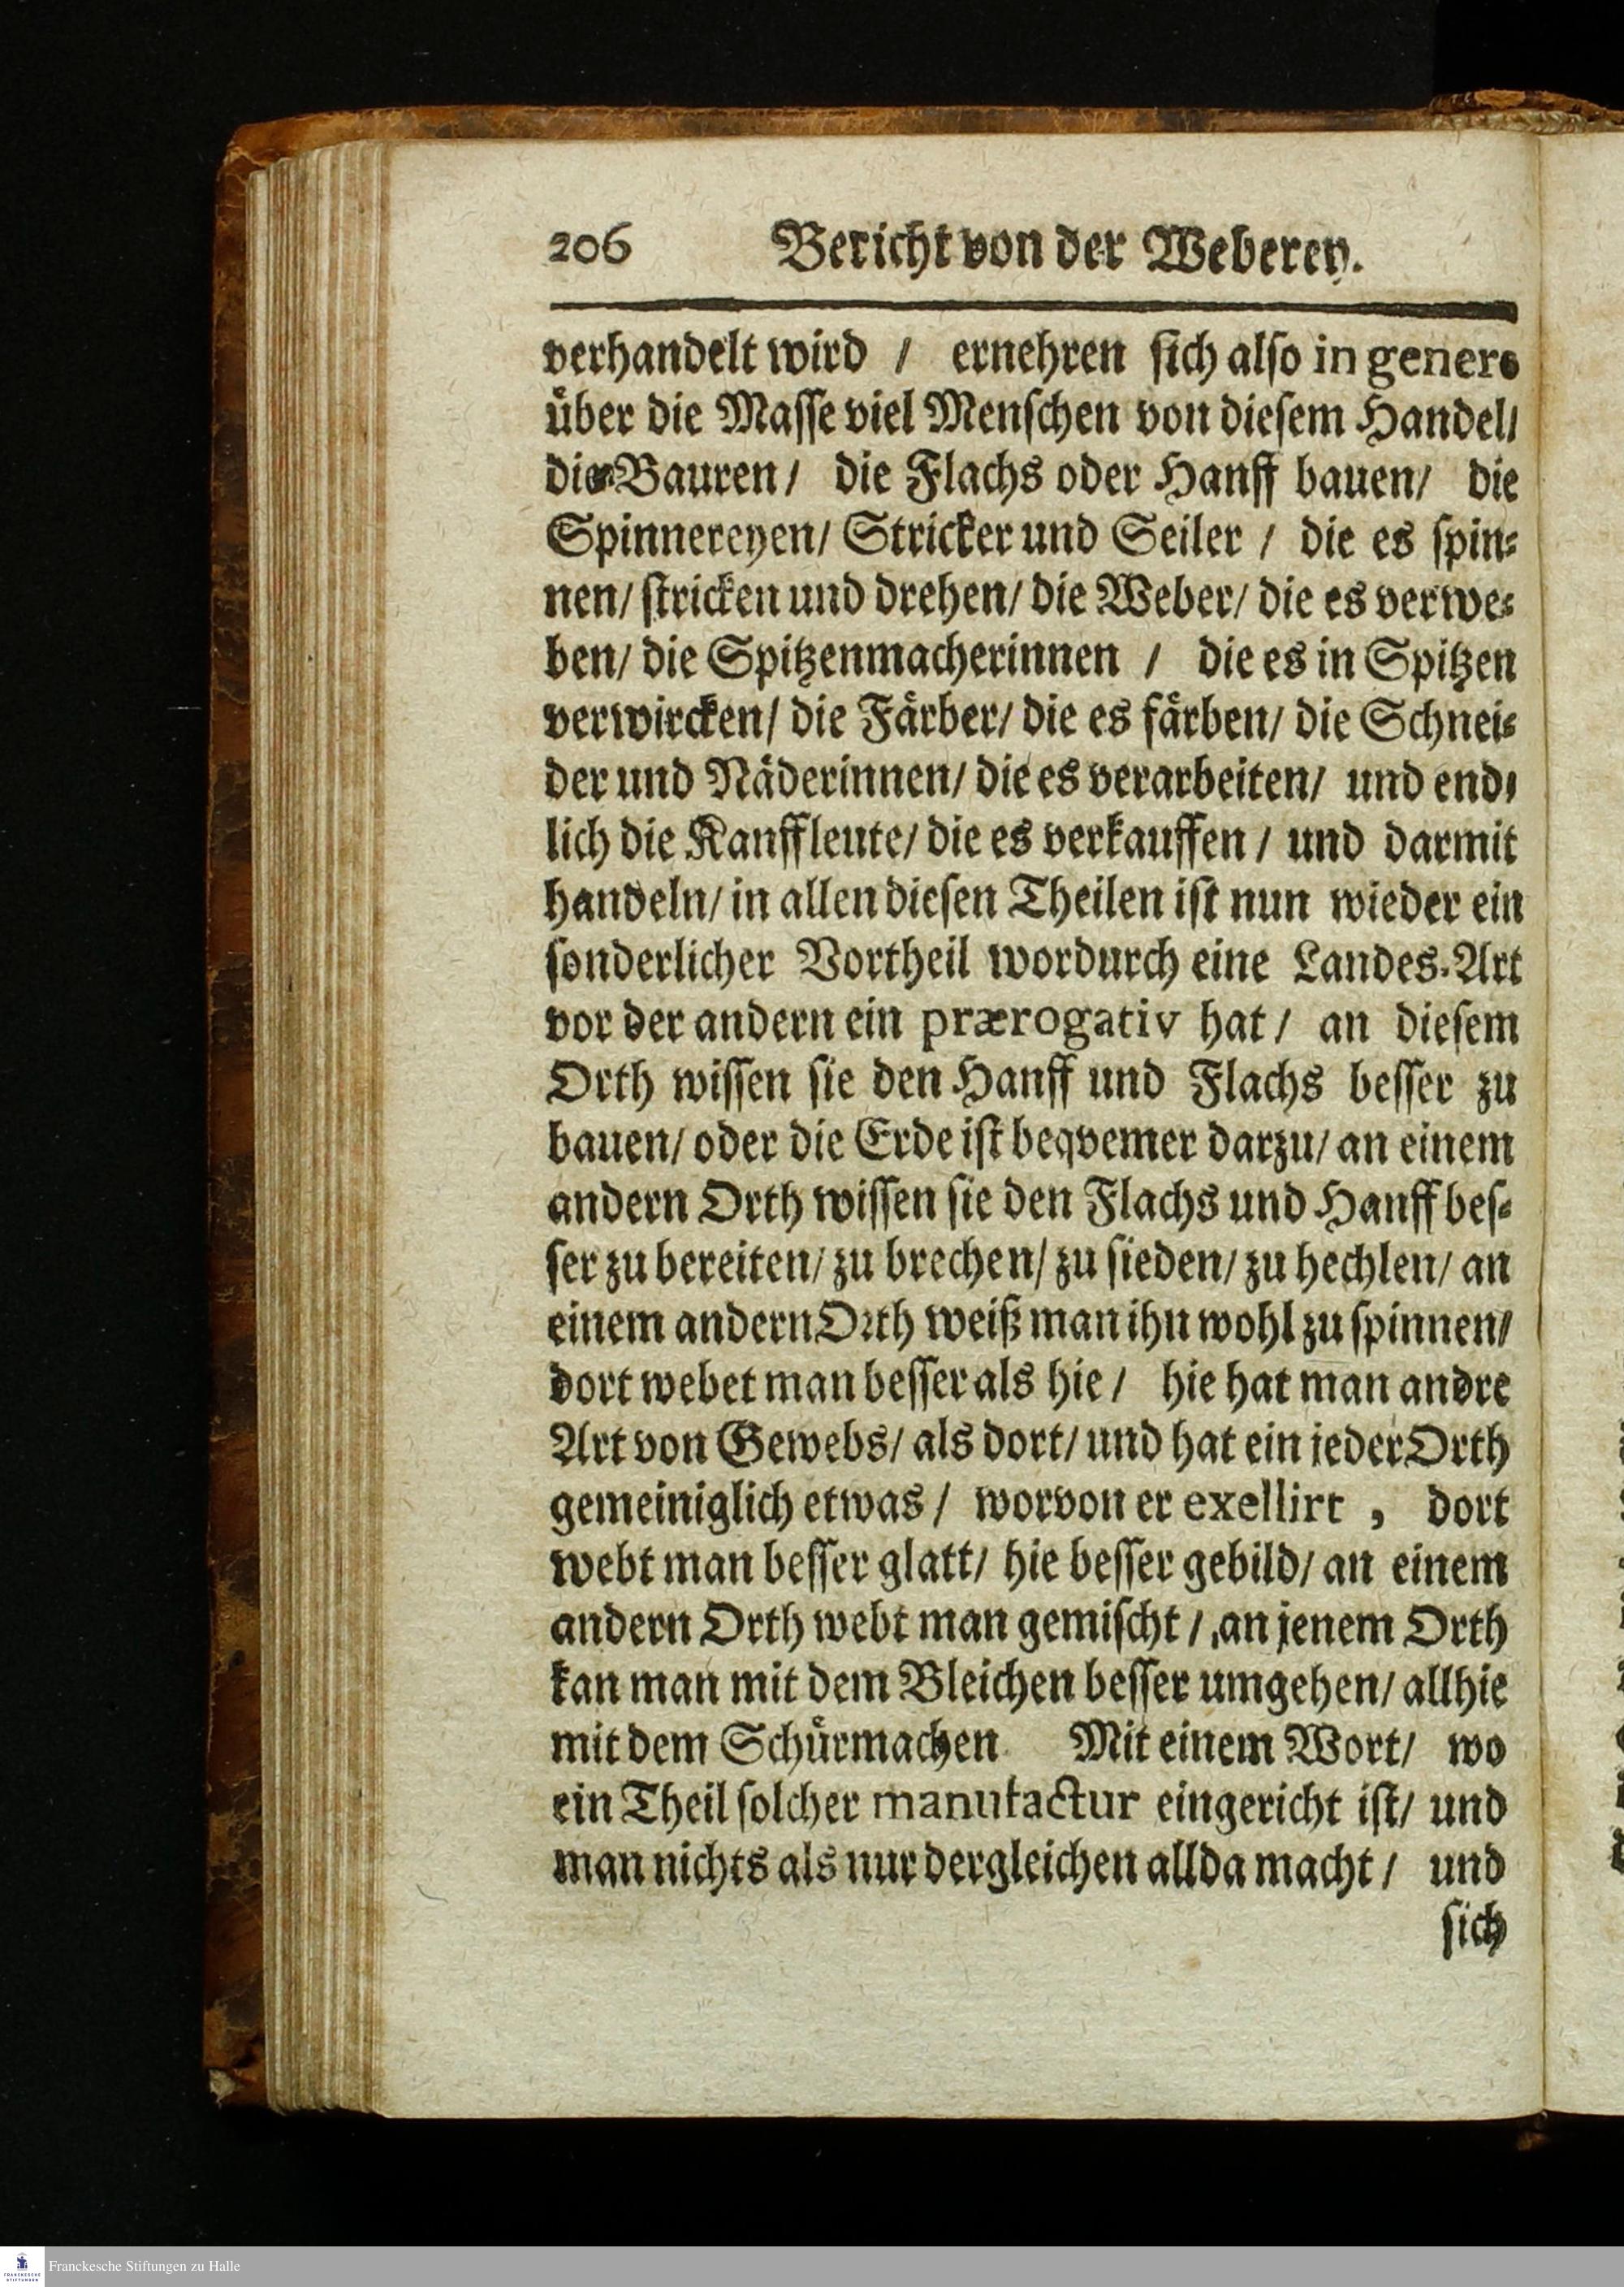 206 Bericht von der Weberey.
verhandelt wird / ernehren ſich alſo in genere
uͤber die Maſſe viel Menſchen von dieſem Handel/
die Bauren / die Flachs oder Hanff bauen/ die
Spinnereyen/ Stricker und Seiler / die es ſpin⸗
nen/ ſtricken und drehen/ die Weber/ die es verwe⸗
ben/ die Spitzenmacherinnen / die es in Spitzen
verwircken/ die Faͤrber/ die es faͤrben/ die Schnei⸗
der und Naͤderinnen/ die es verarbeiten/ und end⸗
lich die Kauffleute/ die es verkauffen / und darmit
handeln/ in allen dieſen Theilen iſt nun wieder ein
ſonderlicher Vortheil wordurch eine Landes-Art
vor der andern ein prærogativ hat / an dieſem
Orth wiſſen ſie den Hanff und Flachs beſſer zu
bauen/ oder die Erde iſt beqvemer darzu/ an einem
andern Orth wiſſen ſie den Flachs und Hanff beſ⸗
ſer zu bereiten/ zu brechen/ zu ſieden/ zu hechlen/ an
einem andern Orth weiß man ihn wohl zu ſpinnen/
dort webet man beſſer als hie / hie hat man andre
Art von Gewebs/ als dort/ und hat ein jeder Orth
gemeiniglich etwas / worvon er exellirt , dort
webt man beſſer glatt/ hie beſſer gebild/ an einem
andern Orth webt man gemiſcht / an jenem Orth
kan man mit dem Bleichen beſſer umgehen/ allhie
mit dem Schuͤrmachen. Mit einem Wort/ wo
ein Theil ſolcher manufactur eingericht iſt/ und
man nichts als nur dergleichen allda macht / und
ſich
Franckesche Stiftungen zu Halle
FRANCKESCHE
STIFTUNGEN